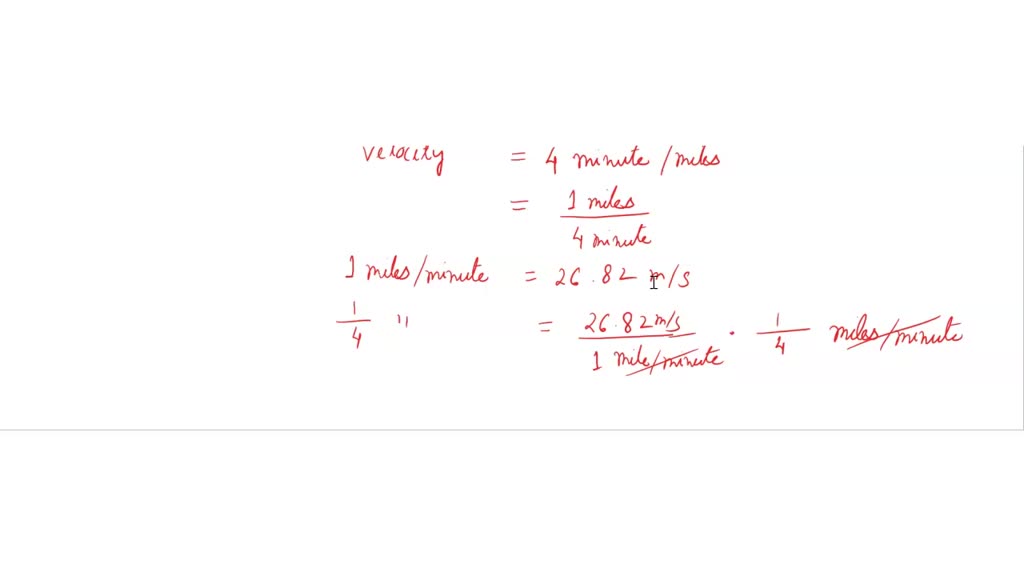 velocity = 4 minute/miles
= 1 miles / 4 minute
1 miles/minute = 26.82 m/s
1/4 " = 26.82 m/s / 1 mile/minute · 1/4 miles/minute